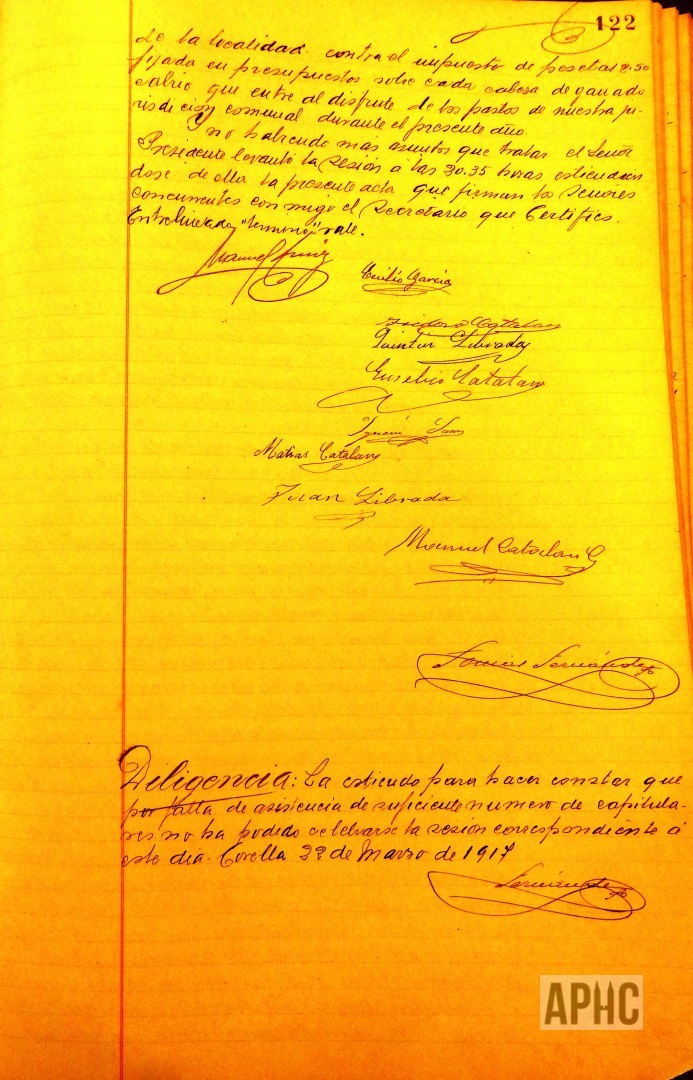 122
de la localidad contra el impuesto de pesetas 2.50
fijada en presupuestos sobre cada cabeza de ganado
cabrio que entre al disfrute de los pastos de nuestra ju-
risdicion comunal durante el presente año
Y no habiendo mas asuntos que tratar el Señor
Presidente levantó la sesión a las 20.35 horas estendien
dose de ella la presente acta que firman los Señores
concurrentes con migo el Secretario que Certifico.
Entrelineado, "termino", vale.
Manuel
Emilio Garcia
Isidoro Catalan
Quintin Librada
Eusebio Catalan
Matias Catalan
Juan Librada
Manuel Catalan G
Fernández
Diligencia: La estiendo para hacer constar que
por falta de asistencia de suficiente numero de capitula-
res no ha podido celebrarse la sesión correspondiente á
este dia. Corella 22 de Marzo de 1917
Fernández
APHC